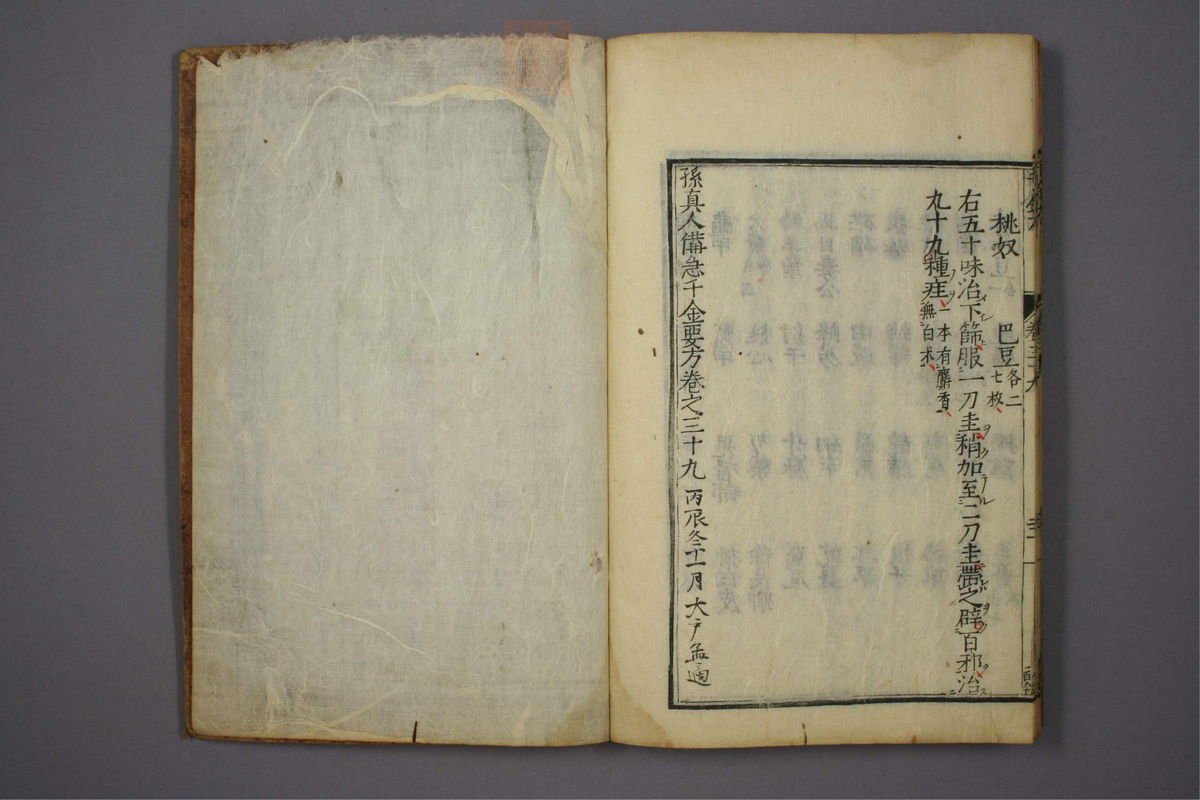 桃奴　巴豆各二七枚
右五十味治下篩服一刀圭稍加至二刀圭帶之辟百邪治
九十九種疰一本有麝香無白朮
孫真人備急千金要方卷之三十九
丙辰冬十一月大戶孟適